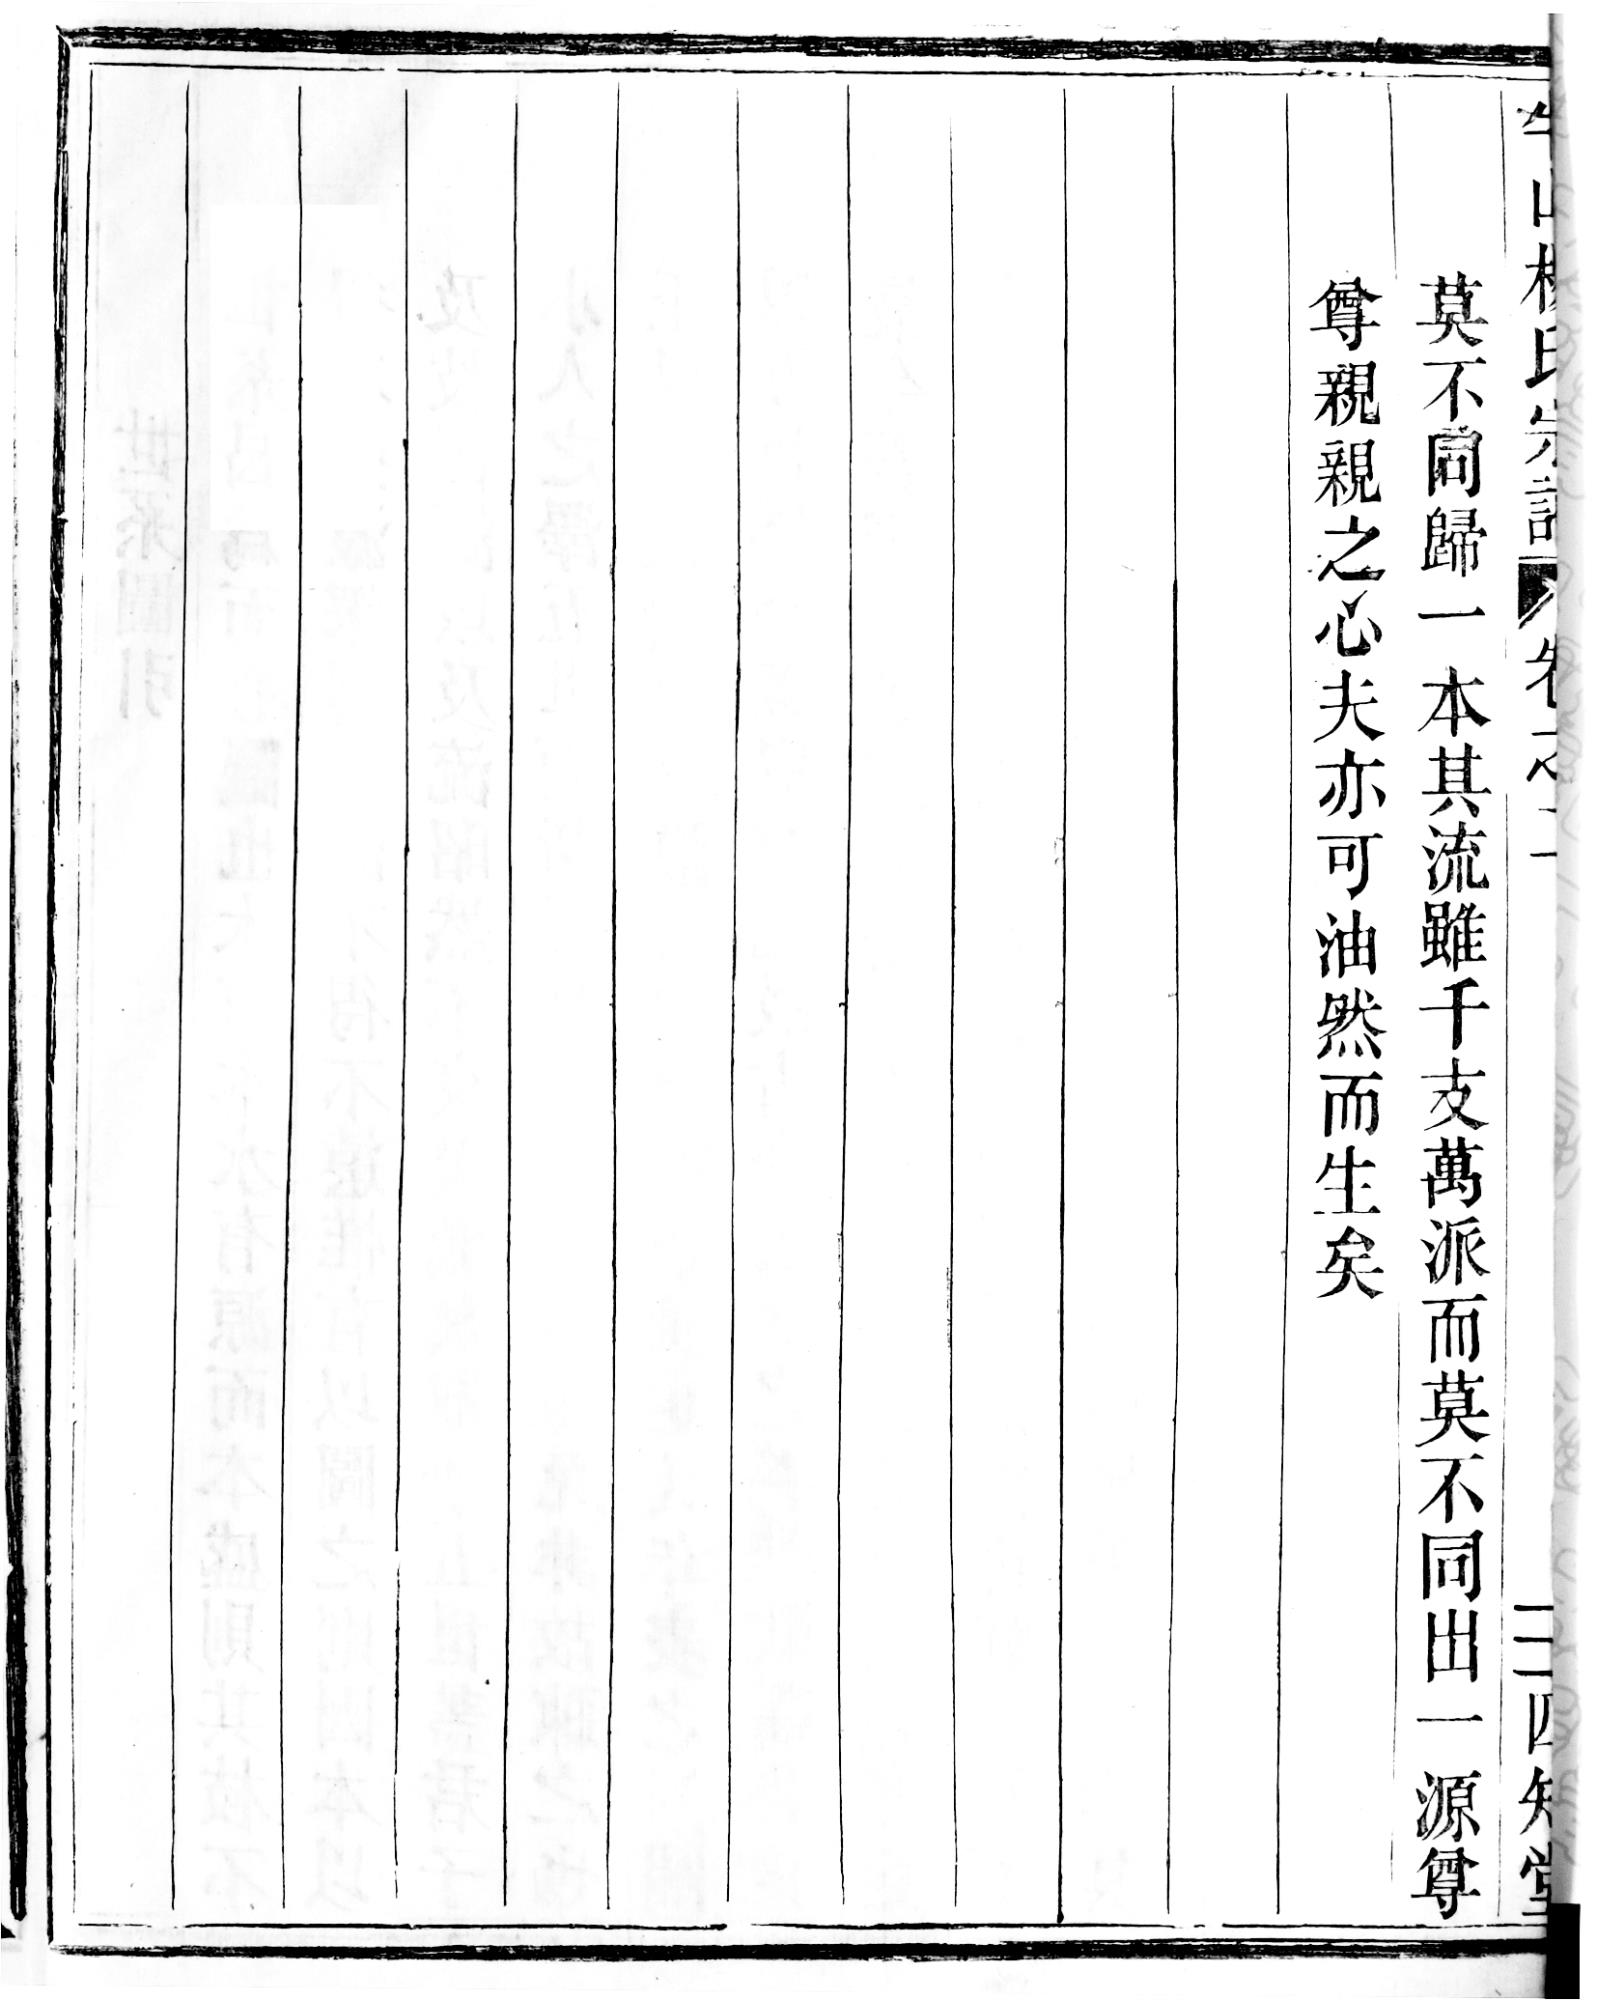 山楊氏宗譜 卷之 二 四知堂
莫不同歸一本其流雖千支萬派而莫不同出一源尊
尊親親之心夫亦可油然而生矣